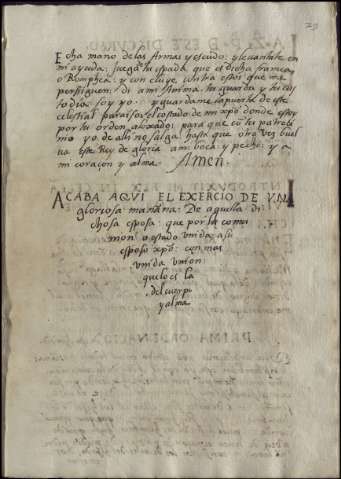 Echa mano de las Armas y escudo: y leuantate en
mi ayuda: juega la espada que es dicha framea,
o Romphea: y concluye contra estos que me
persiguen. di a mi Anima. tu guarda y tu cus
todia soy yo. y guardame la puerta de este
celestial paraiso, el costado de mi xpõ donde estoy
por tu orden
mio yo de alli no salga hasta que otra vez buel
va este Rey de gloria a mi boca y pecho: y a
mi coraçon y alma. Amen.
ACABA AQVI EL EXERCIO DE VNA
gloriosa mañana: De aquella di
chosa esposa: que por la comu
nion o estado vnida a su
esposo xpõ: con mas
vnida vnion
que lo es la
del cuerpo
y alma.